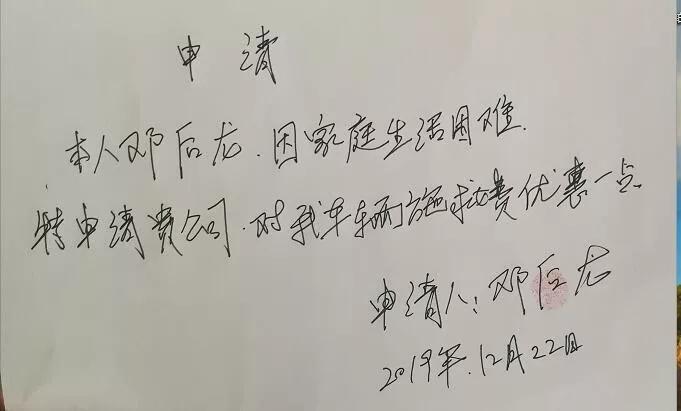 申请
本人邓后龙.因家庭生活困难.
特申请贵公司.对我车辆施救费优惠一点
申请人:邓后龙
2019年.12月22日